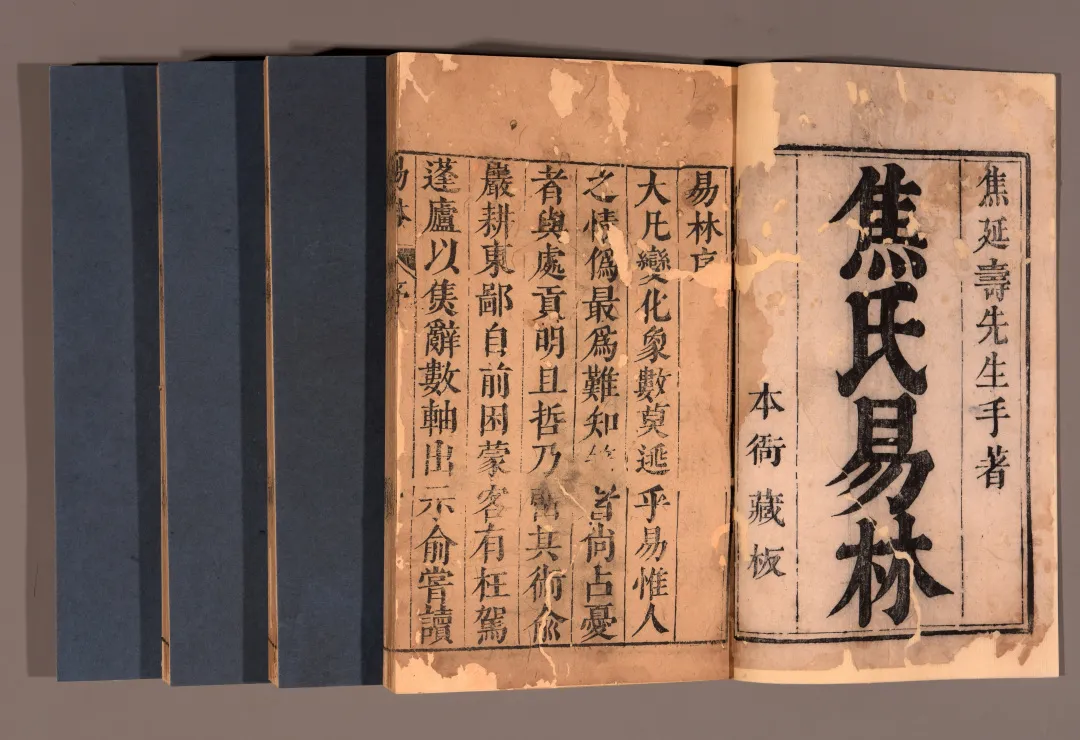 焦延壽先生手著
焦氏易林
本衙藏板
易林序
大凡變化象數莫逃乎易惟人
之情僞最爲難知 昔尚占憂
者與處貢明且哲乃 其術僉
嚴耕東鄙自前困蒙客有枉駕
蓬廬以焦辭數軸出示俞嘗讀
易林 序